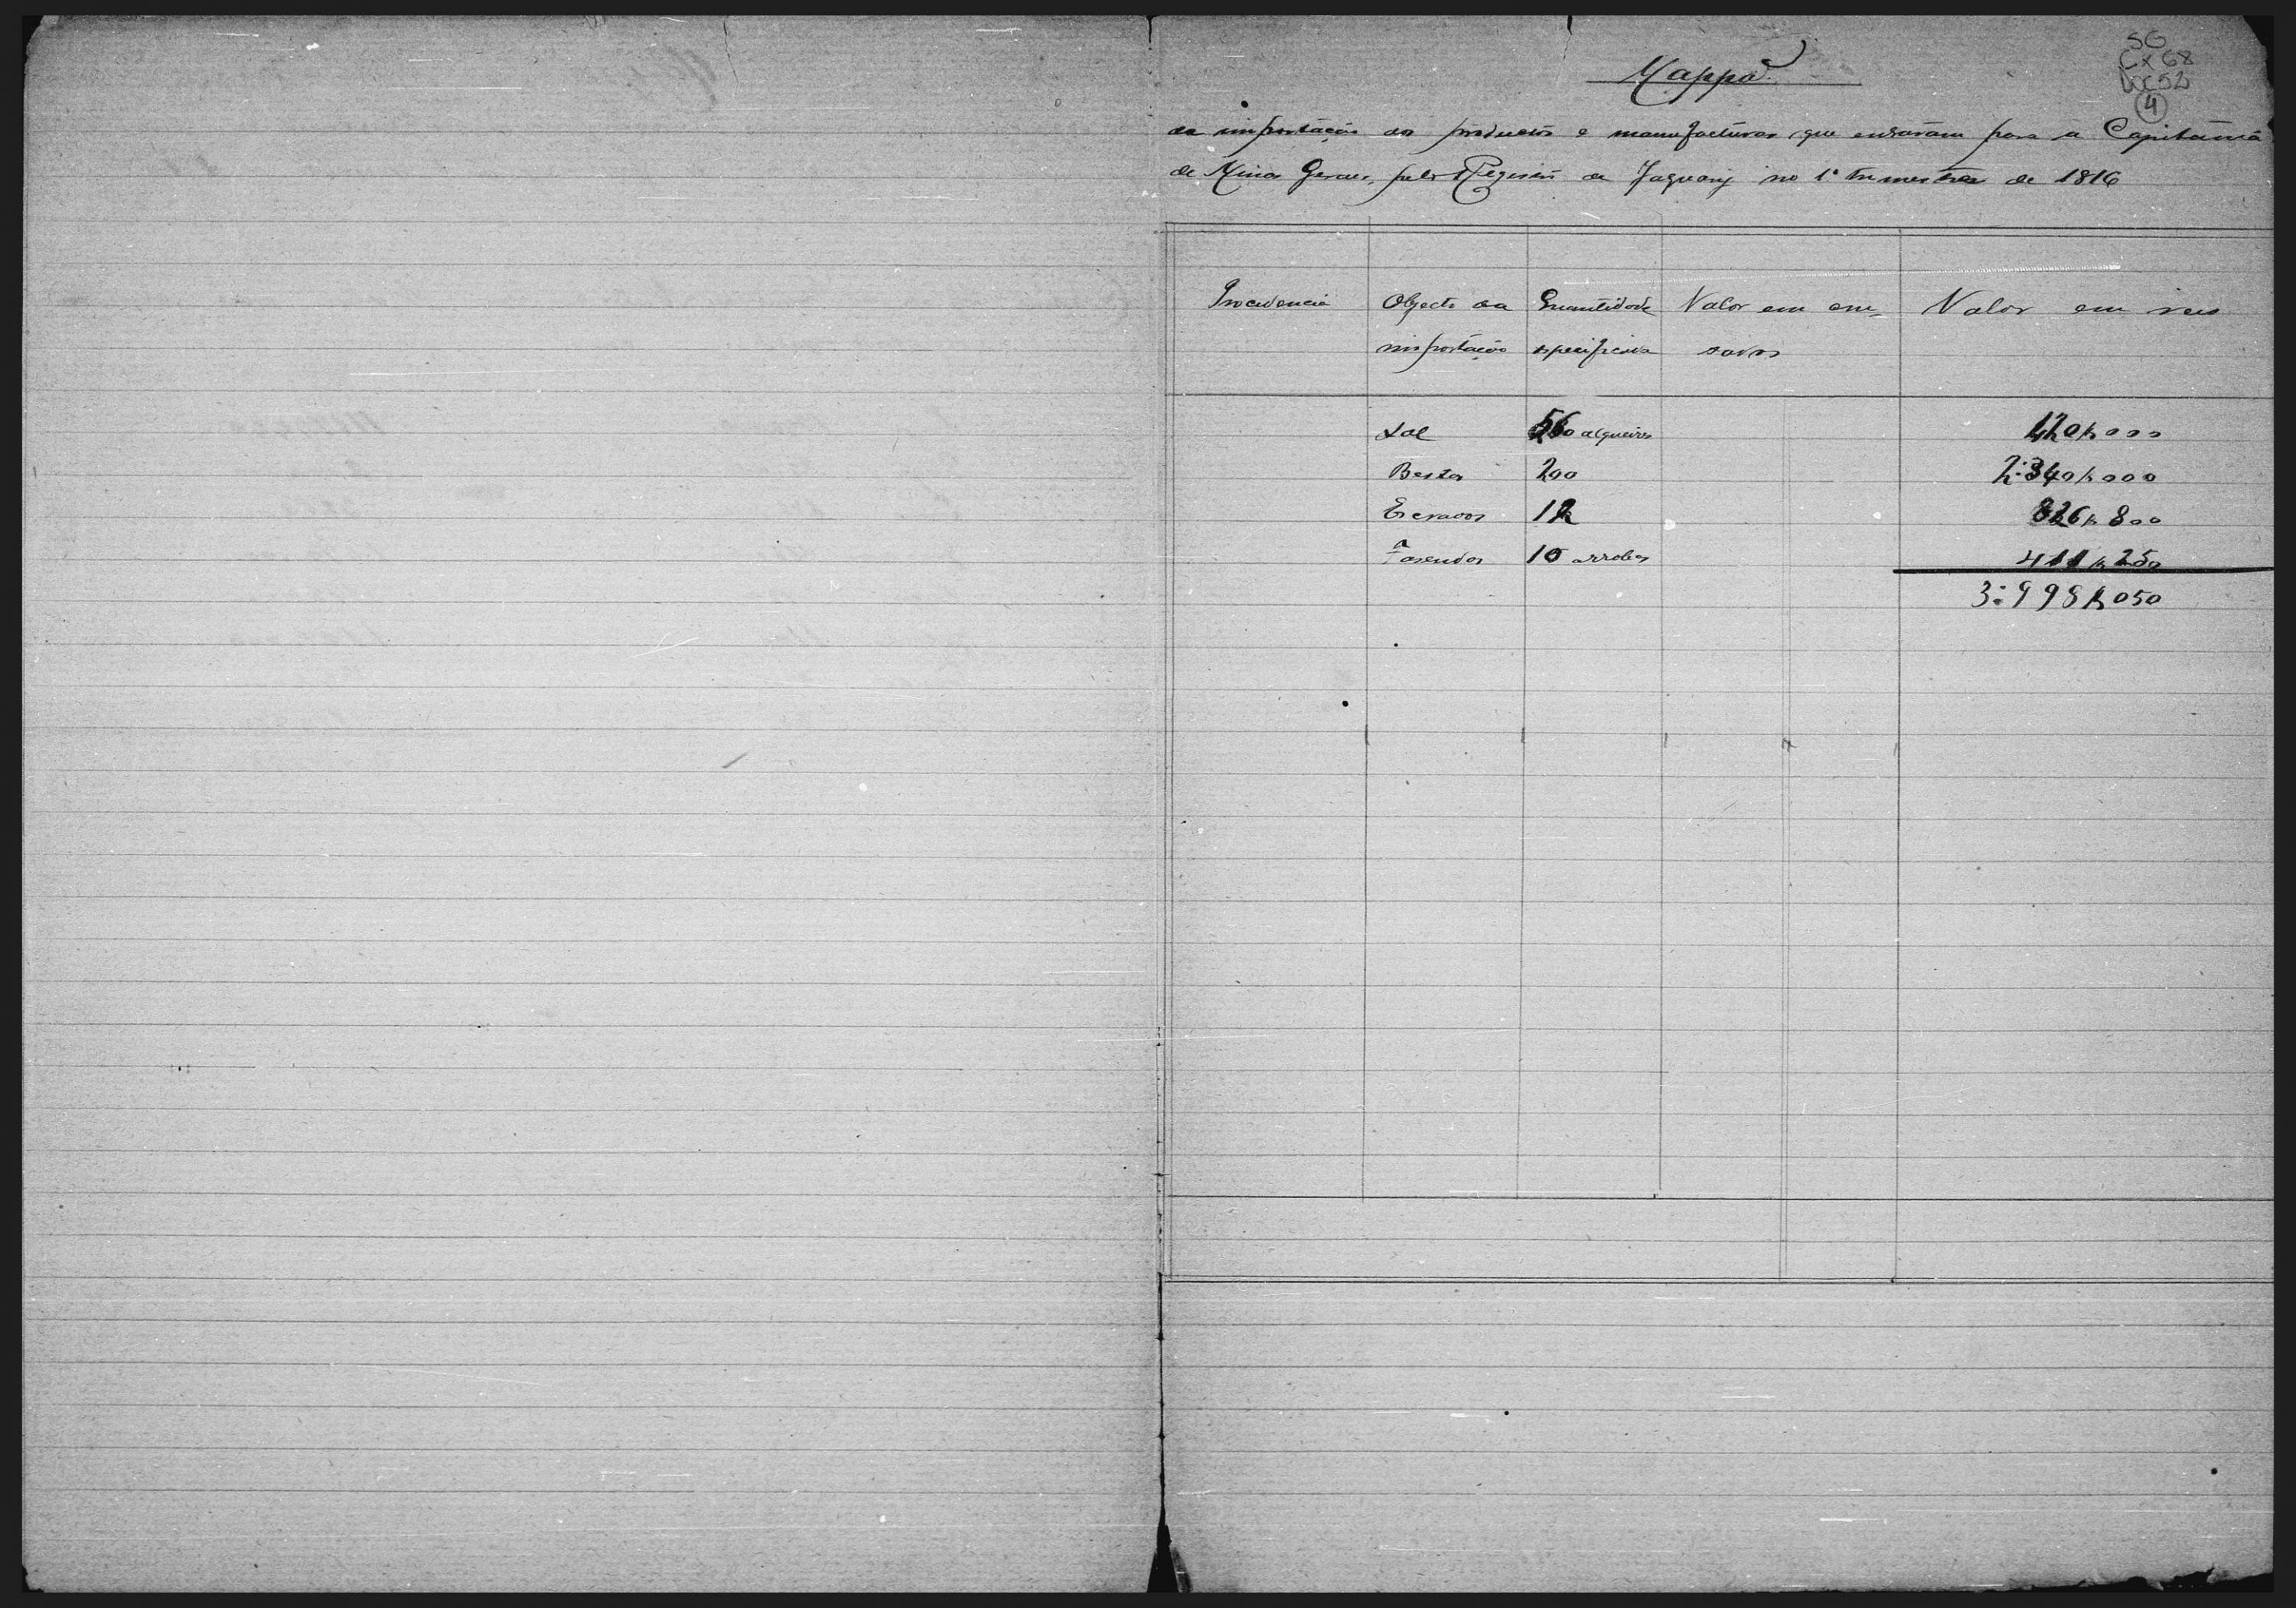 SG
Cx 68
Doc 52
4
Mappa
da importação dos productos e manufacturas, que entraram para a Capitania
de Minas Geraes, pelo Registro de Jaguary no 1º trimestre de 1816
Procedencia Objecto da Quantidade Valor em cru= Valor em reis
importação especificada sados
Sal 560 alqueires 420$000
Bestas 200 2:340$000
Escravos 12 826$800
Fasendas 10 arrobas 411$250
3:998$050